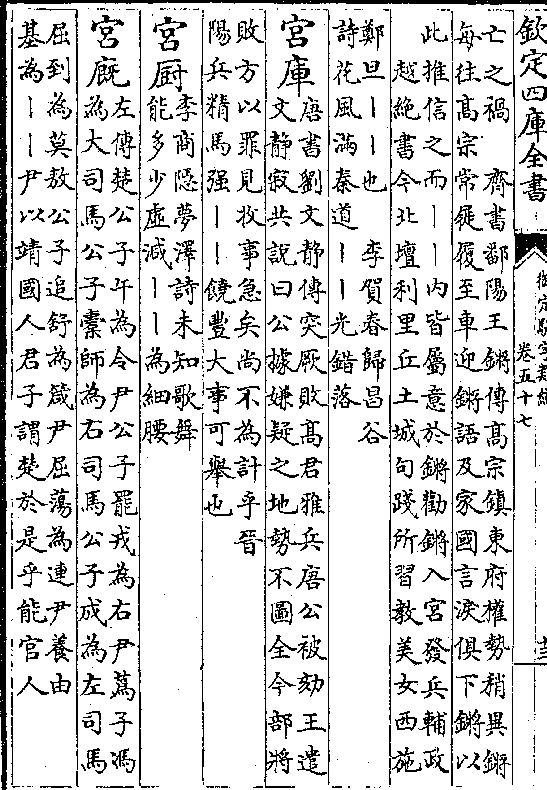 欽定四庫全書
御定駢字類編
卷五十七
亡之禍　齊書鄱陽王鏘傳髙宗鎮東府權勢稍異鏘
每往髙宗常屣履至車迎鏘語及家國言淚俱下鏘以
此推信之而丨丨内皆屬意於鏘勸鏘入宫發兵輔政
越絶書今北壇利里丘土城句踐所習教美女西施
鄭旦丨丨也　李賀春歸昌谷
詩花風滿秦道丨丨光錯落
宫庫
唐書劉文静傳突厥敗髙君雅兵唐公被劾王遣
文静寂共説曰公據嫌疑之地勢不圖全今部將
敗方以罪見收事急矣尚不為計乎晉
陽兵精馬强丨丨饒豐大事可舉也
宫厨
李商隱夢澤詩未知歌舞
能多少虚減丨丨為細腰
宫廐
左傳楚公子午為令尹公子罷戎為右尹蒍子馮
為大司馬公子橐師為右司馬公子成為左司馬
屈到為莫敖公子追舒為箴尹屈蕩為連尹養由
基為丨丨尹以靖國人君子謂楚於是乎能官人